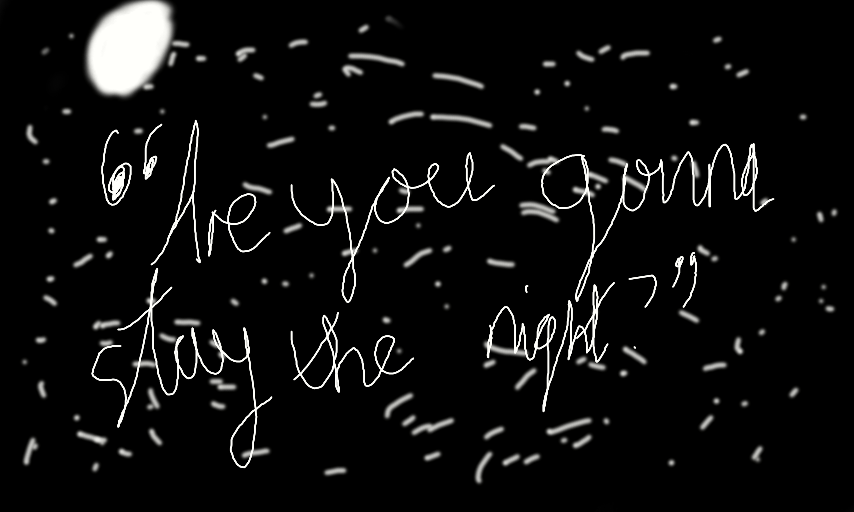 “Are you gonna
stay the night?”